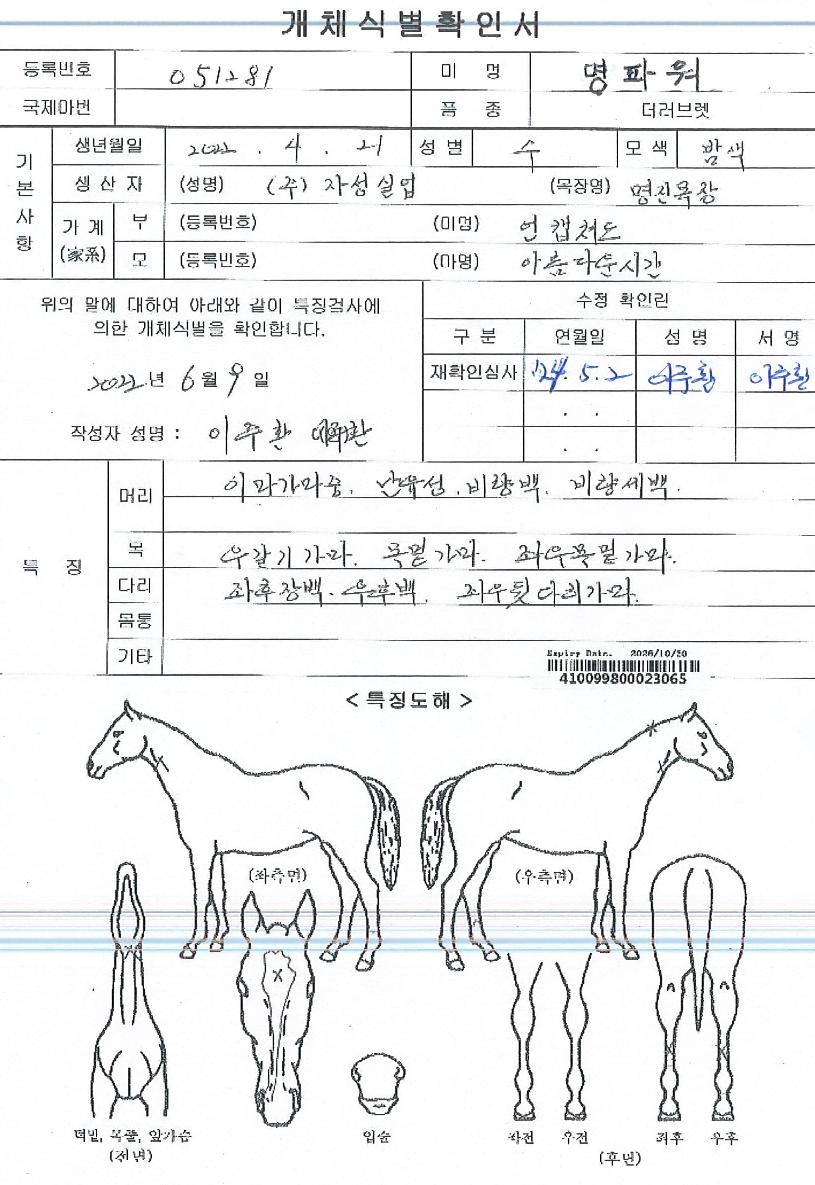 개체식별확인서
등록번호 051281 마 명 명파워
국제마번 품 종 더러브렛
기본사항 생년월일 2022. 4. 21 성별 수 모색 밤색
생산자 (성명) (주) 자성실업 (목장명) 명진목장
가계 (家系) 부 (등록번호) (마명) 언캡쳐드
모 (등록번호) (마명) 아름다운시간
위의 말에 대하여 아래와 같이 특징검사에
의한 개체식별을 확인합니다.
2022년 6월 9일
작성자 성명 : 이주환
수정 확인린
구분 연월일 성명 서명
재확인심사 '24. 5. 2 이주환 이주환
. .
. .
특 징
머리 이마가마중. 난유성. 비량백. 비량세백.
목 우갈기가마. 목밑가마. 좌우목밑가마.
다리 좌후장백. 우후백. 좌우뒷다리가마.
몸통
기타
Expiry Date. 2026/10/20
410099800023065
< 특징도해 >
(좌측면) (우측면)
턱밑, 목쫄, 앞가슴
(전면)
입술
좌전 우전 좌후 우후
(후면)